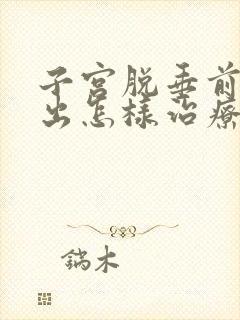 子宫脱垂前
出怎样治疗
鎬木